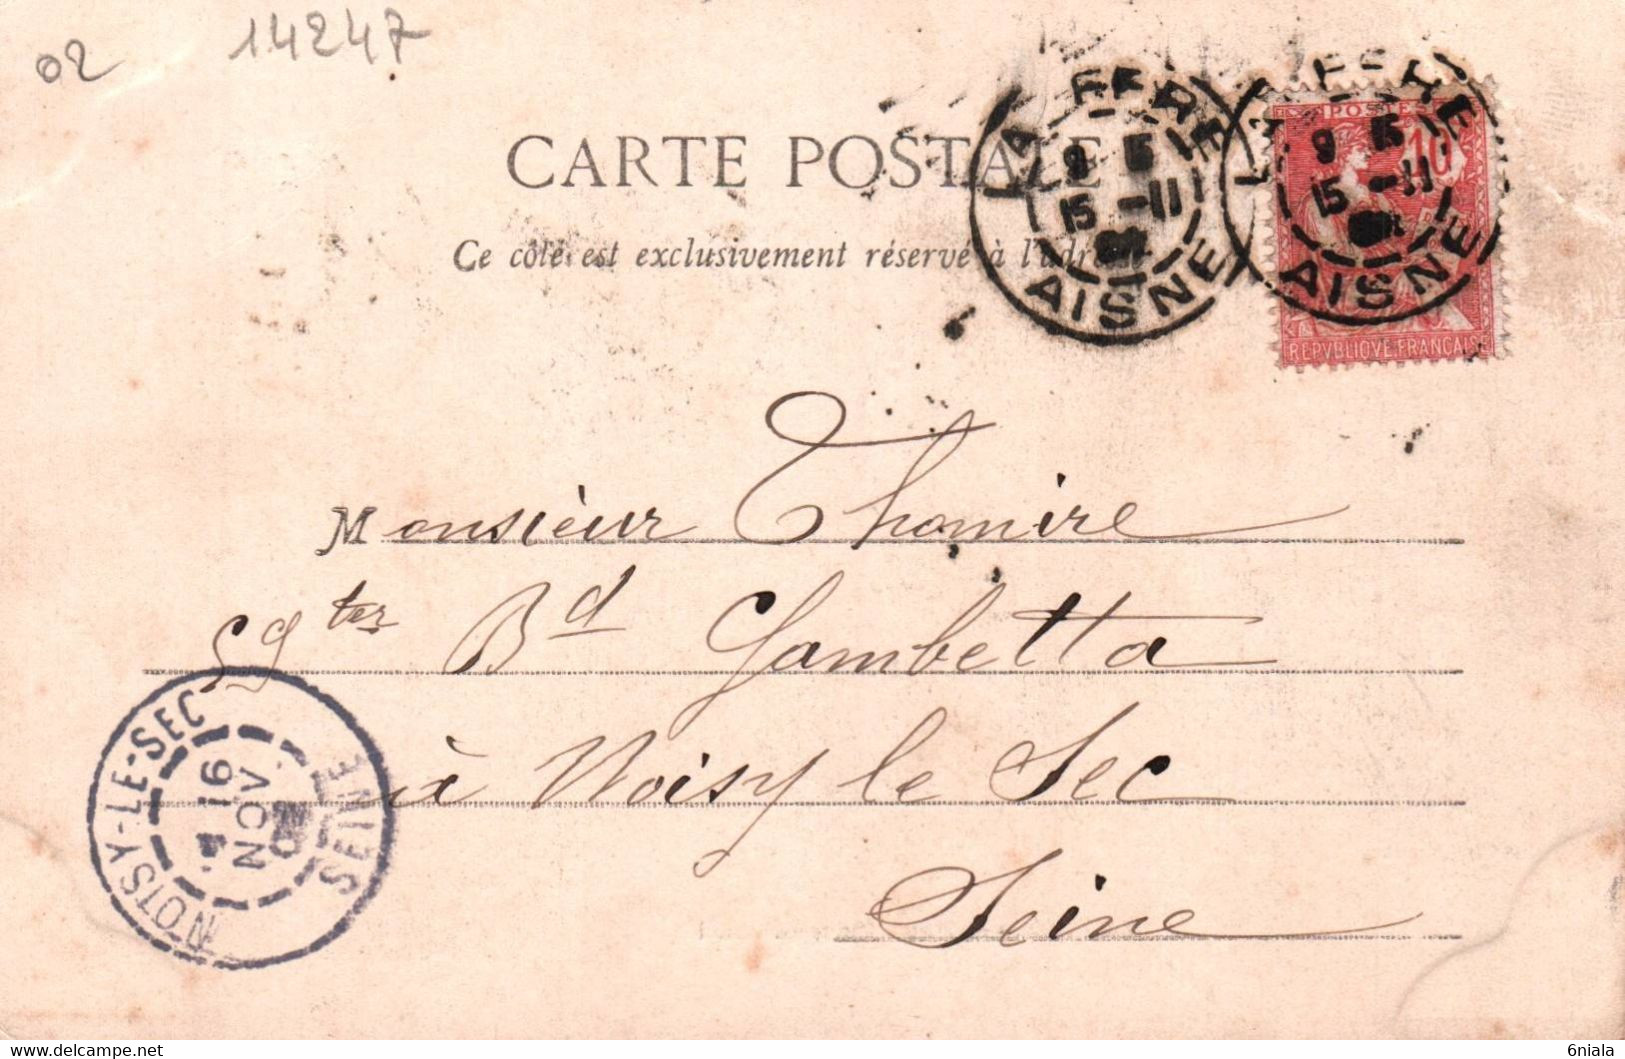 02 14247
CARTE POSTALE
Ce côté est exclusivement réservé à l'adresse
LA FERE
9 5
15 -11
AISNE
LA FERE
9 5
15 -11
AISNE
POSTES
10
REPVBLIQVE FRANÇAISE
Monsieur Thomire
59 ter Bd Gambetta
à Noisy le Sec
Seine
NOISY-LE-SEC
16
NOV
SEINE
6niala
https://www.delcampe.net